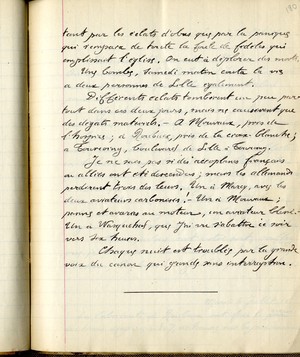 tant par les éclats d'obus que par la panique
qui s'empara de toute la foule de fidèles qui
emplissait l'église. On eut à déplorer des morts.
Une bombe, samedi matin coûta la vie
à deux personnes de Lille également.
Différents éclats tombèrent un peu par-
tout dans ces deux jours, mais ne causèrent que
des dégâts matériels. - A Mouvaux, près de
l'hospice; à Roubaix, près de la croix blanche;
à Tourcoing, boulevard de Lille à Tourcoing.
Je ne sais pas si des aéroplanes français
ou alliés ont été descendus; mais les allemands
perdirent trois des leurs. Un à Marcq, avec les
deux aviateurs carbonisés! - Un à Mouvaux;
pannes et avaries au moteur, un aviateur blessé.
Un à Wasquehal, que j'ai vu s'abattre ce soir
vers six heures.
Chaque nuit est troublée par la grande
voix du canon qui gronde sans interruption.